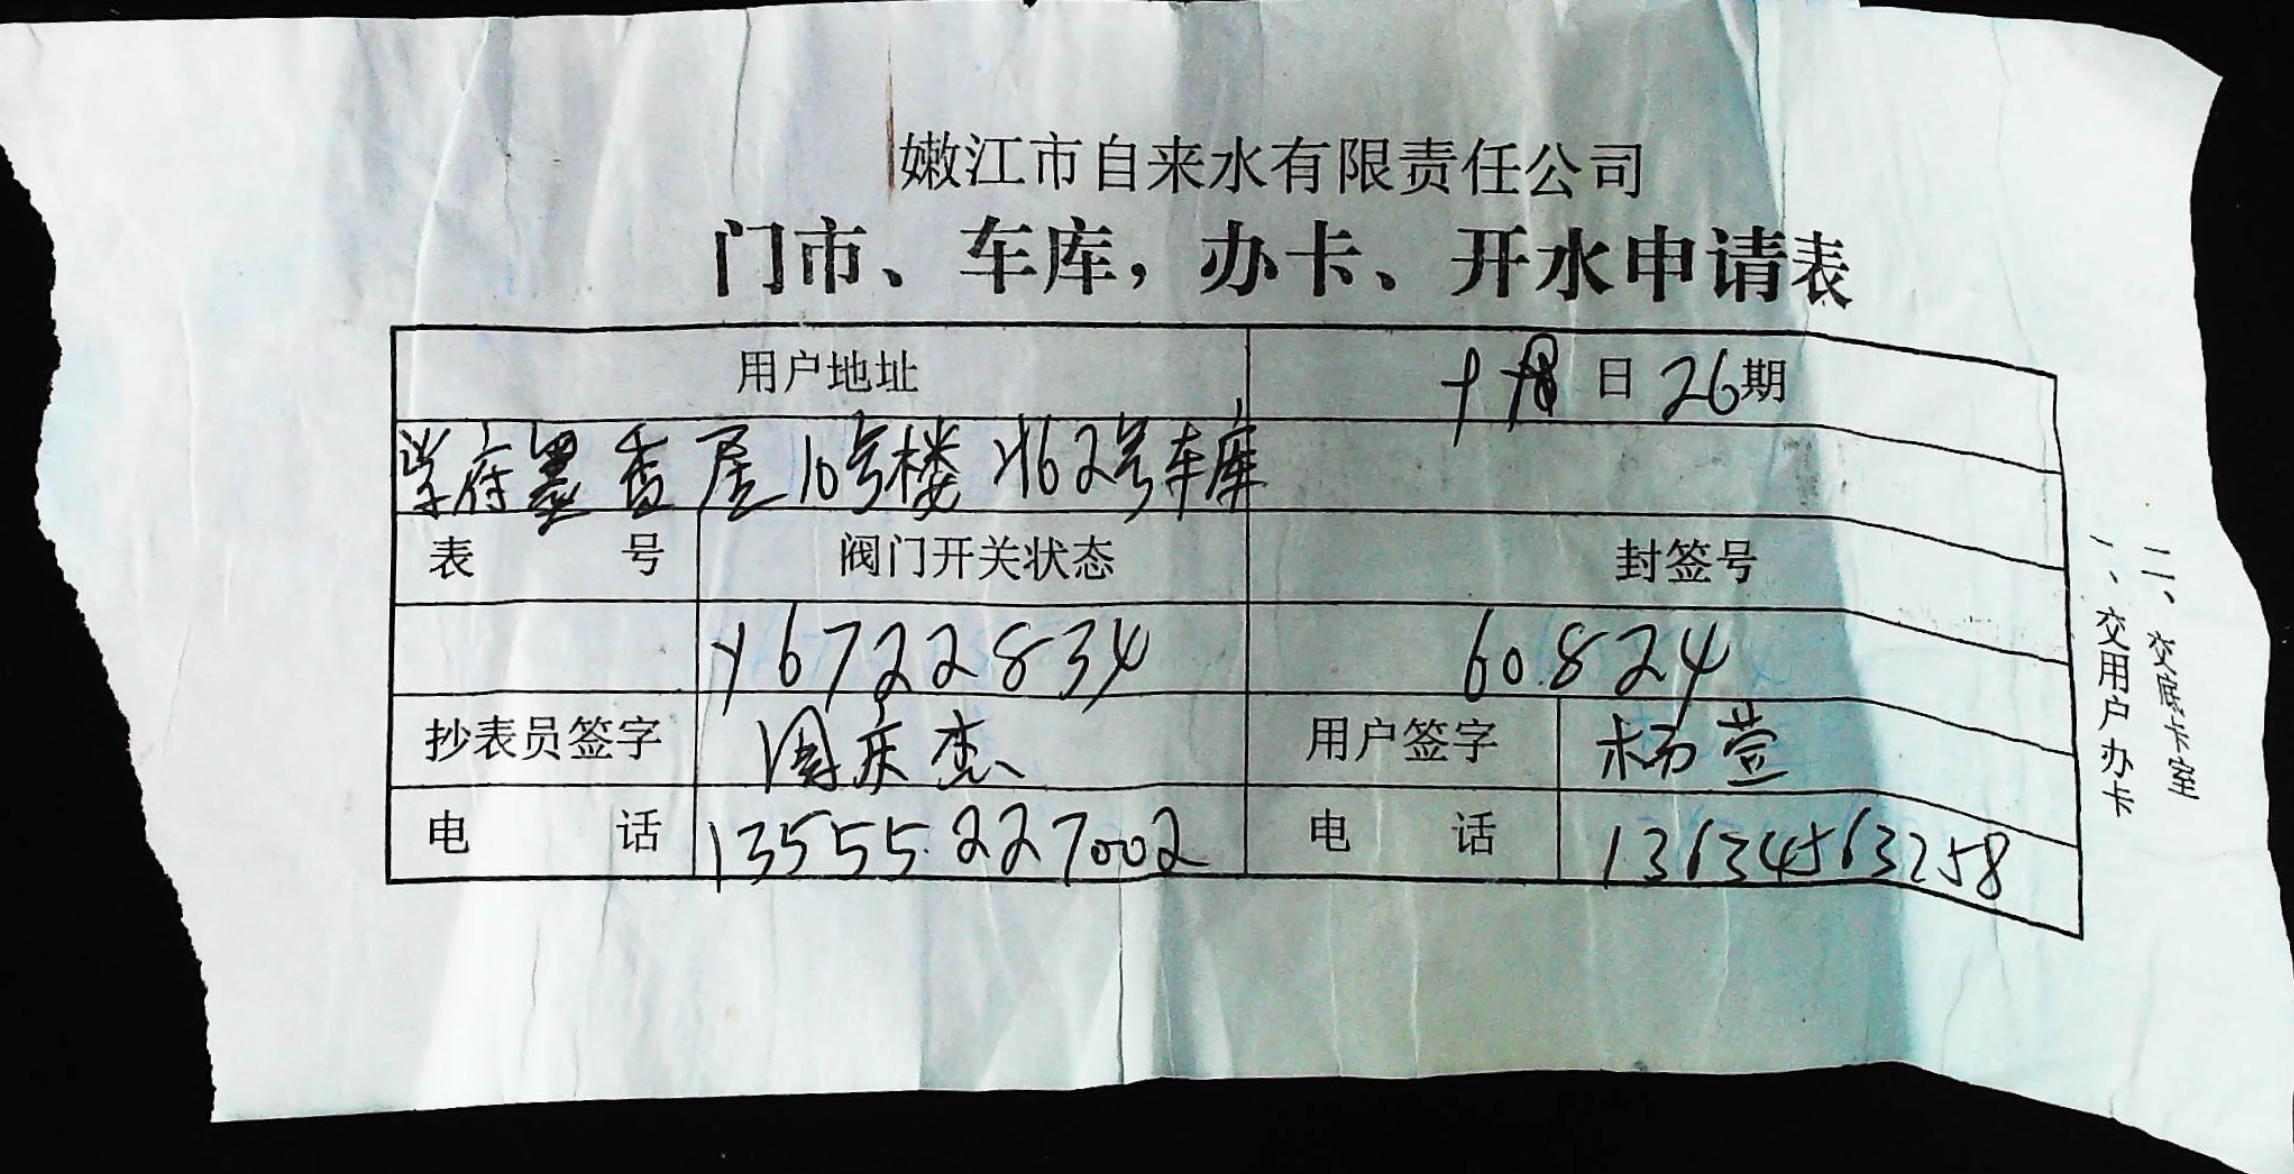 嫩江市自来水有限责任公司
门市、车库，办卡、开水申请表
用户地址 日 26期
学府墨香居10号楼 Y62号车库
表 号 阀门开关状态 封签号
Y6722834 60824
抄表员签字 周庆杰 用户签字 杨萱
电 话 13555227002 电 话 13634563258
一、交用户办卡
二、交底卡室